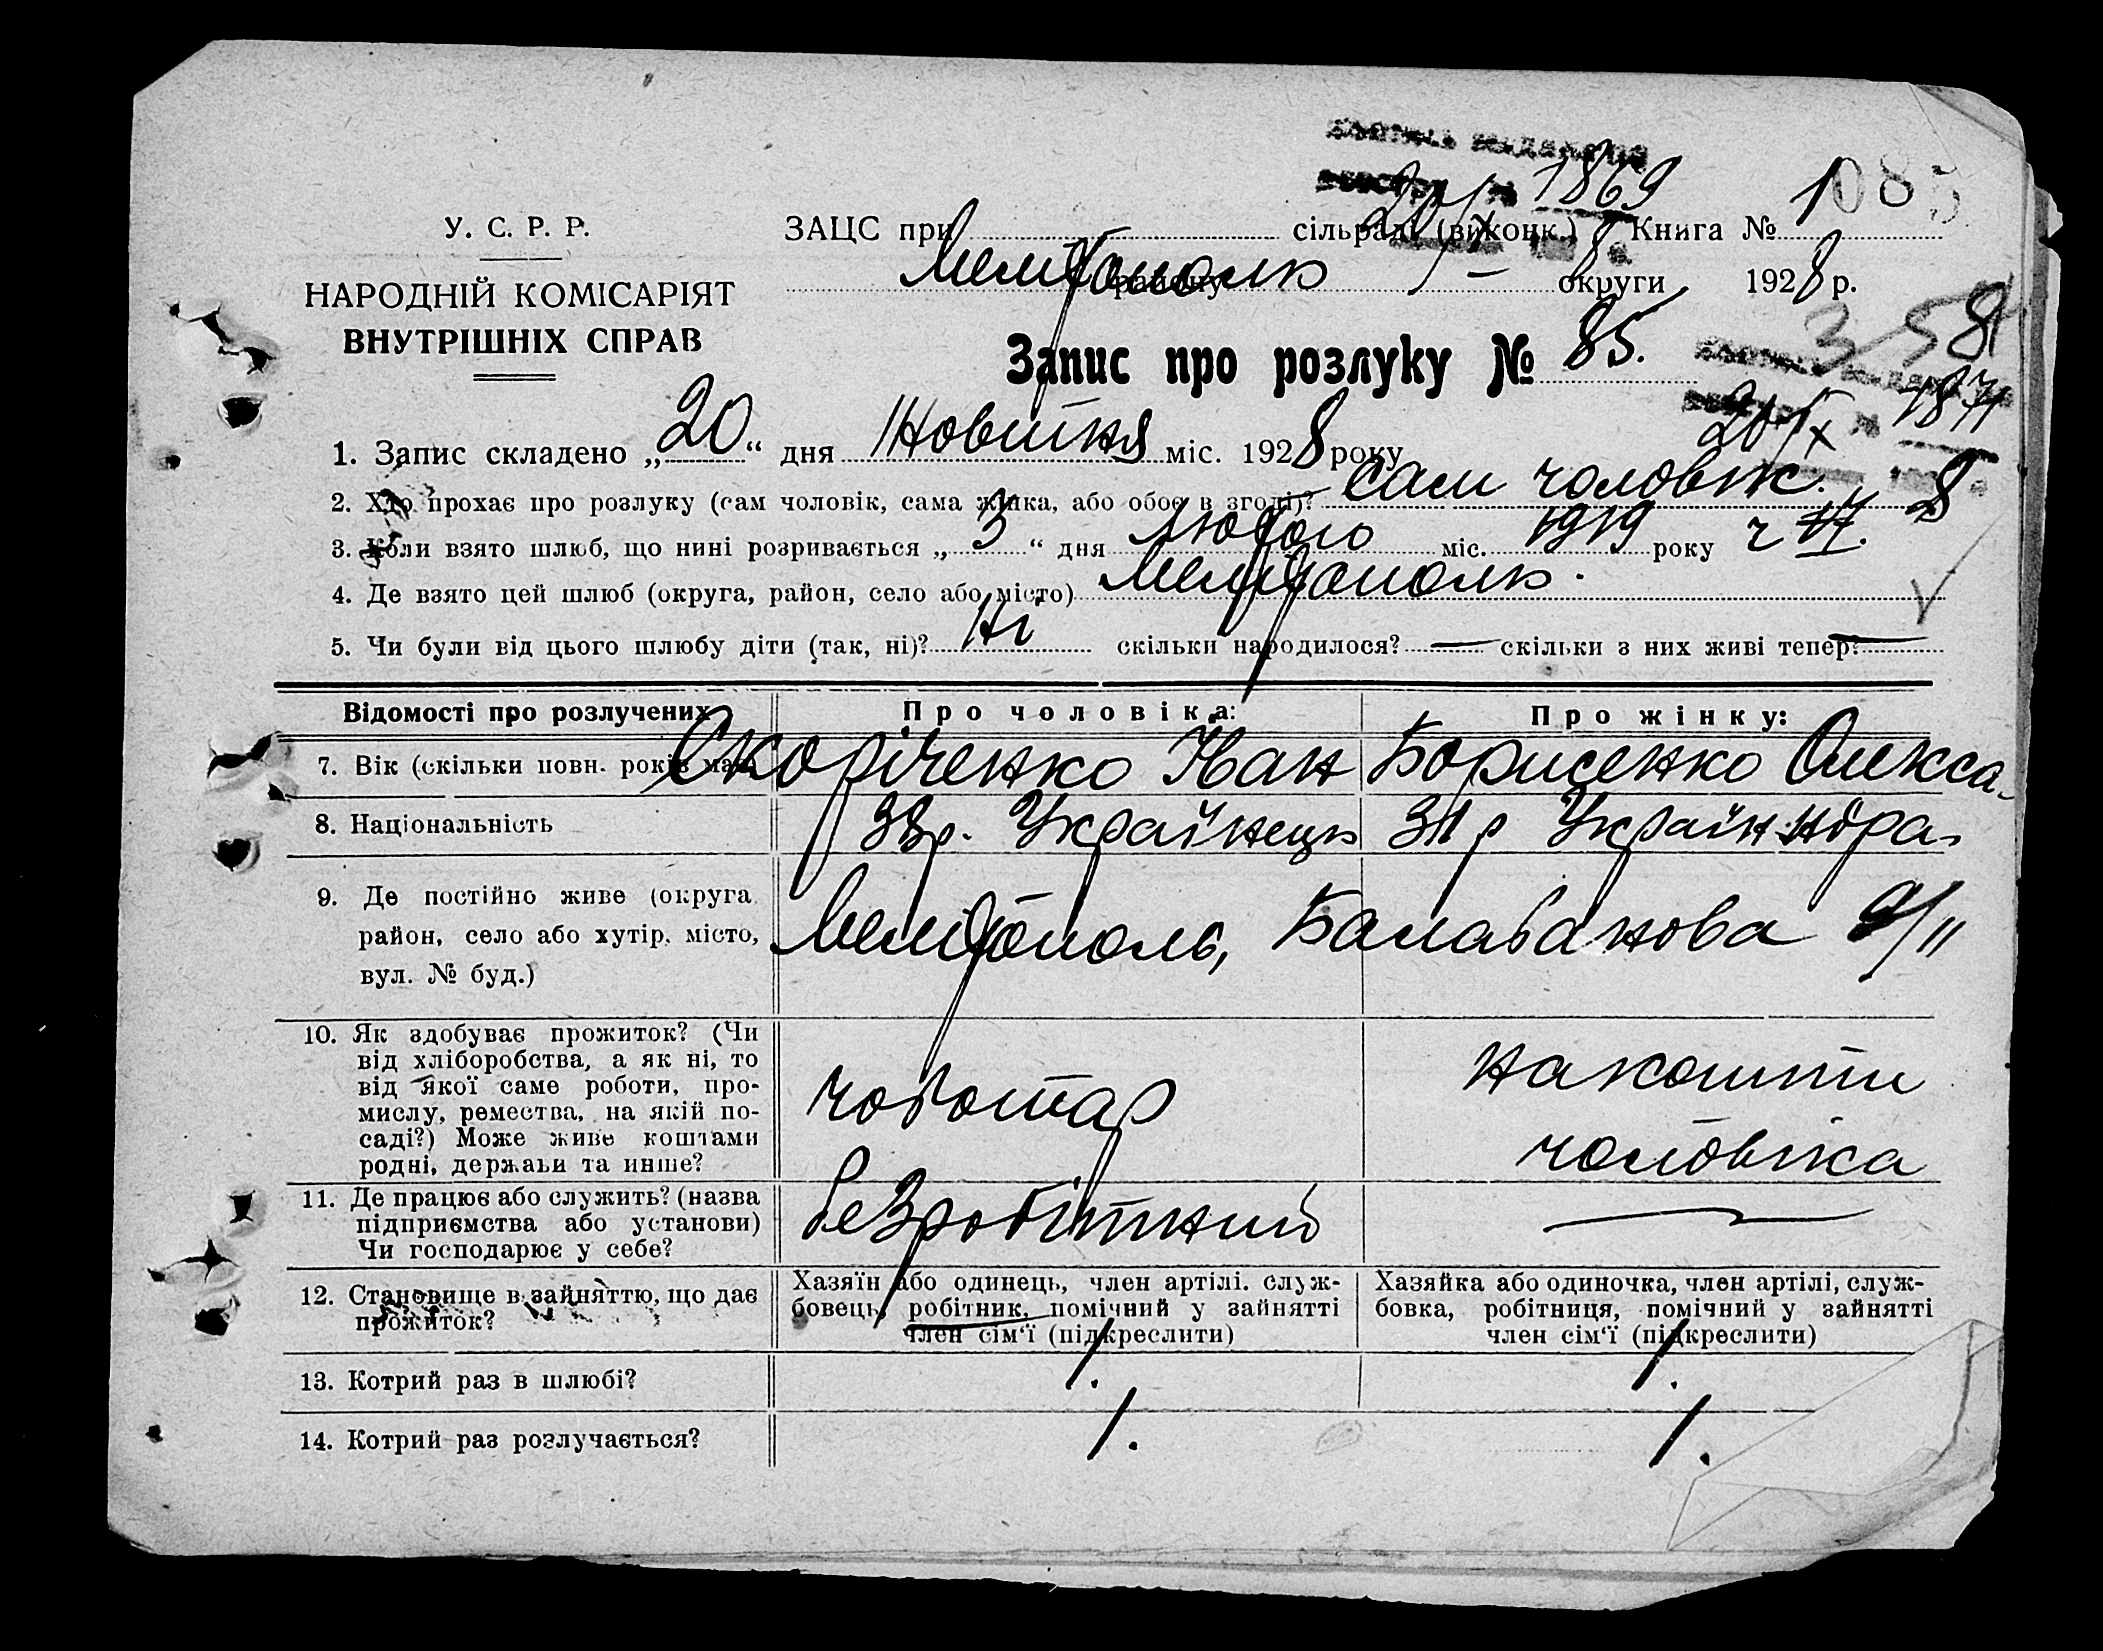 1085
У. С. Р. Р.
НАРОДНІЙ КОМІСАРІЯТ
ВНУТРІШНІХ СПРАВ
1869
ЗАЦС при сільраді (виконк.) Книга № 1
Мелітополь району округи 1928 р.
Запис про розлуку № 85.
358
1871
1. Запис складено „20“ дня Жовтня міс. 1928 року
2. Хто прохає про розлуку (сам чоловік, сама жінка, або обоє в згоді)? сам чоловік.
3. Коли взято шлюб, що нині розривається „3“ дня Лютого міс. 1919 року
4. Де взято цей шлюб (округа, район, село або місто) Мелітополь.
5. Чи були від цього шлюбу діти (так, ні)? Ні скільки народилося? — скільки з них живі тепер? —
Відомості про розлучених Про чоловіка: Про жінку:
7. Вік (скільки повн. років має) Скоріченко Іван Борисенко Олекса-
8. Національність 33р. Українець 31р Україн. ндра-
9. Де постійно живе (округа, район, село або хутір, місто, вул. № буд.)
Мелітополь, Балабанова /11
10. Як здобуває прожиток? (Чи
від хліборобства, а як ні, то
від якої саме роботи, про-
мислу, ремества, на якій по-
саді?) Може живе коштами
родні, держави та инше?
чоботар
на кошти
чоловіка
11. Де працює або служить? (назва
підприємства або установи)
Чи господарює у себе?
безробітний —
12. Становище в зайняттю, що дає
прожиток?
Хазяїн або одинець, член артілі. служ-
бовець, робітник, помічний у зайнятті
член сім'ї (підкреслити)
Хазяйка або одиночка, член артілі, служ-
бовка, робітниця, помічний у зайнятті
член сім'ї (підкреслити)
13. Котрий раз в шлюбі? 1. 1.
14. Котрий раз розлучається? 1. 1.